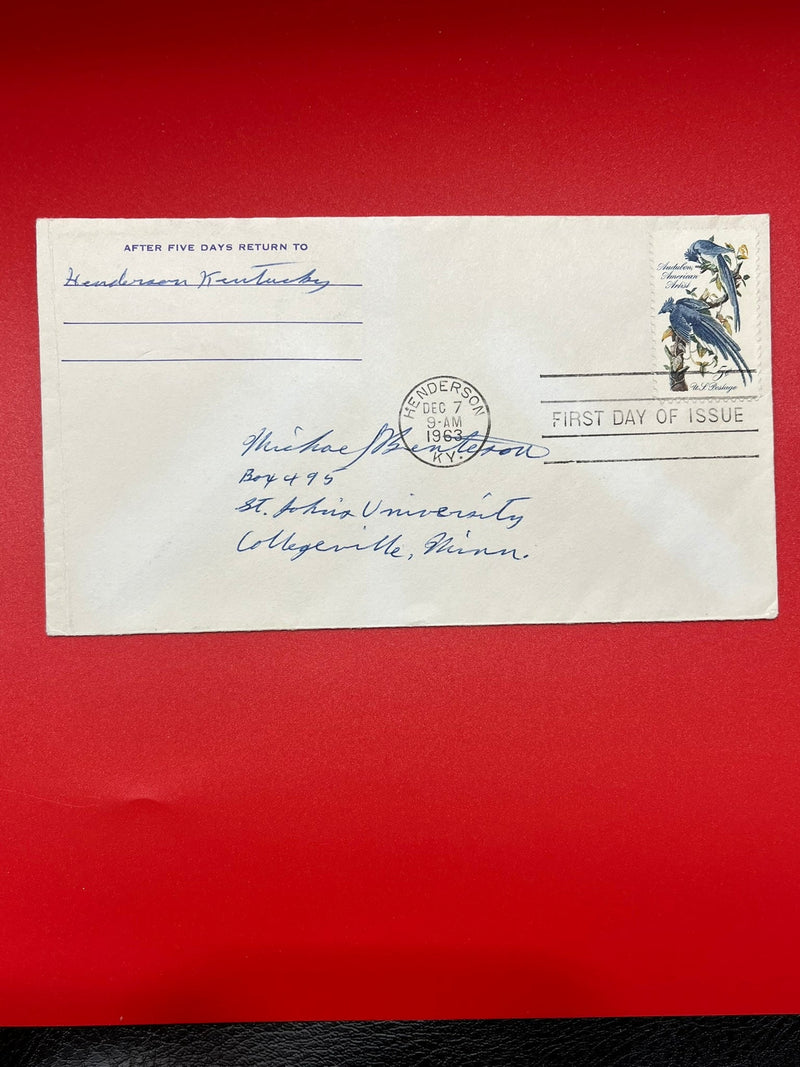 AFTER FIVE DAYS RETURN TO
Henderson Kentucky
Audubon,
American
Artist
5¢
U.S. Postage
HENDERSON
DEC 7
9-AM
1963
KY.
FIRST DAY OF ISSUE
Michael J
Box 495
St. John's University
Collegeville, Minn.